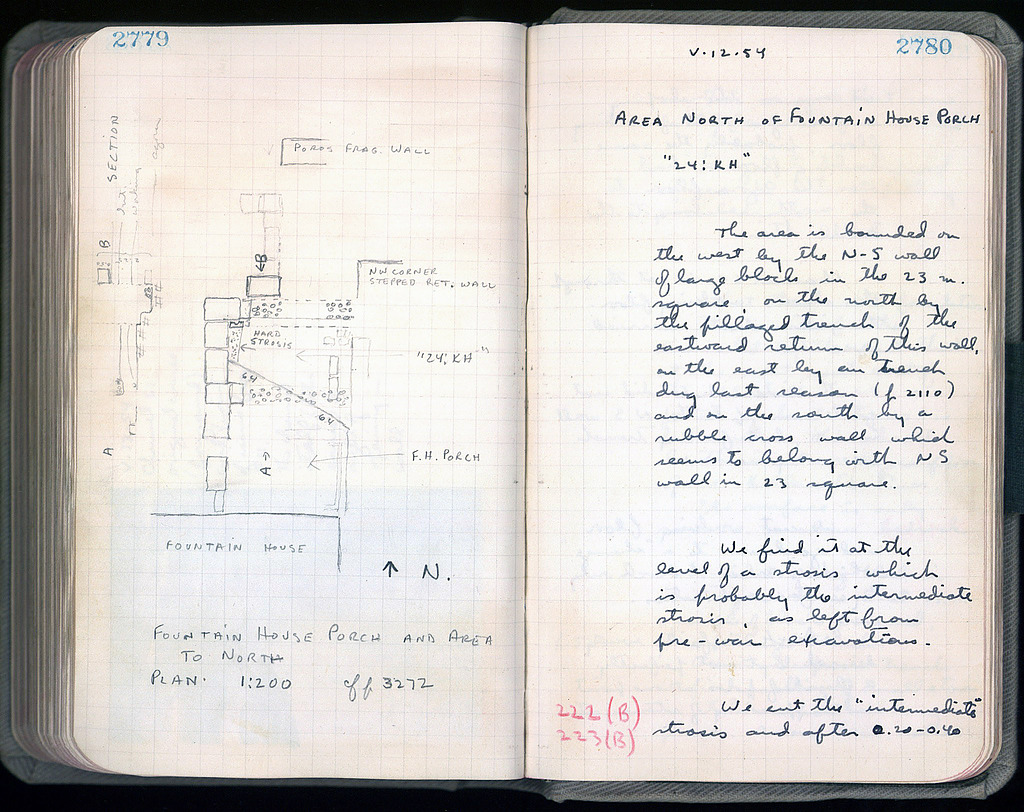 2779
SECTION
A
B
POROS FRAG. WALL
B
NW CORNER
STEPPED RET. WALL
HARD
STROSIS
"24:KH"
64
64
A
F.H. PORCH
FOUNTAIN HOUSE
N.
FOUNTAIN HOUSE PORCH AND AREA
TO NORTH
PLAN. 1:200 cf p 3272
2780
V.12.54
AREA NORTH OF FOUNTAIN HOUSE PORCH
"24:KH"
The area is bounded on
the west by the N-S wall
of large blocks in the 23 m.
square on the north by
the pillaged trench of the
eastward return of this wall,
on the east by an trench
dug last season (p 2110)
and on the south by a
rubble cross wall which
seems to belong with NS
wall in 23 square.
We find it at the
level of a strosis which
is probably the intermediate
strosis, as left from
pre-war excavations.
222 (B)
223 (B)
We cut the "intermediate"
strosis and after 0.20-0.40